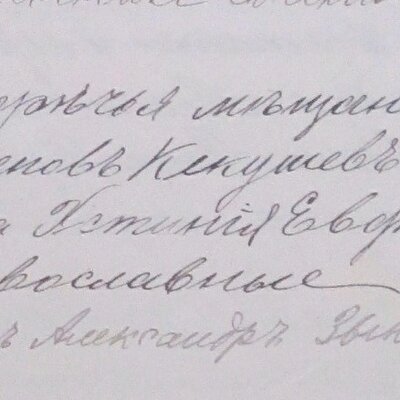 орѣчья мѣщан
еновъ Кекушевъ
а Устинія Евф
вославные
ъ Александръ Зык